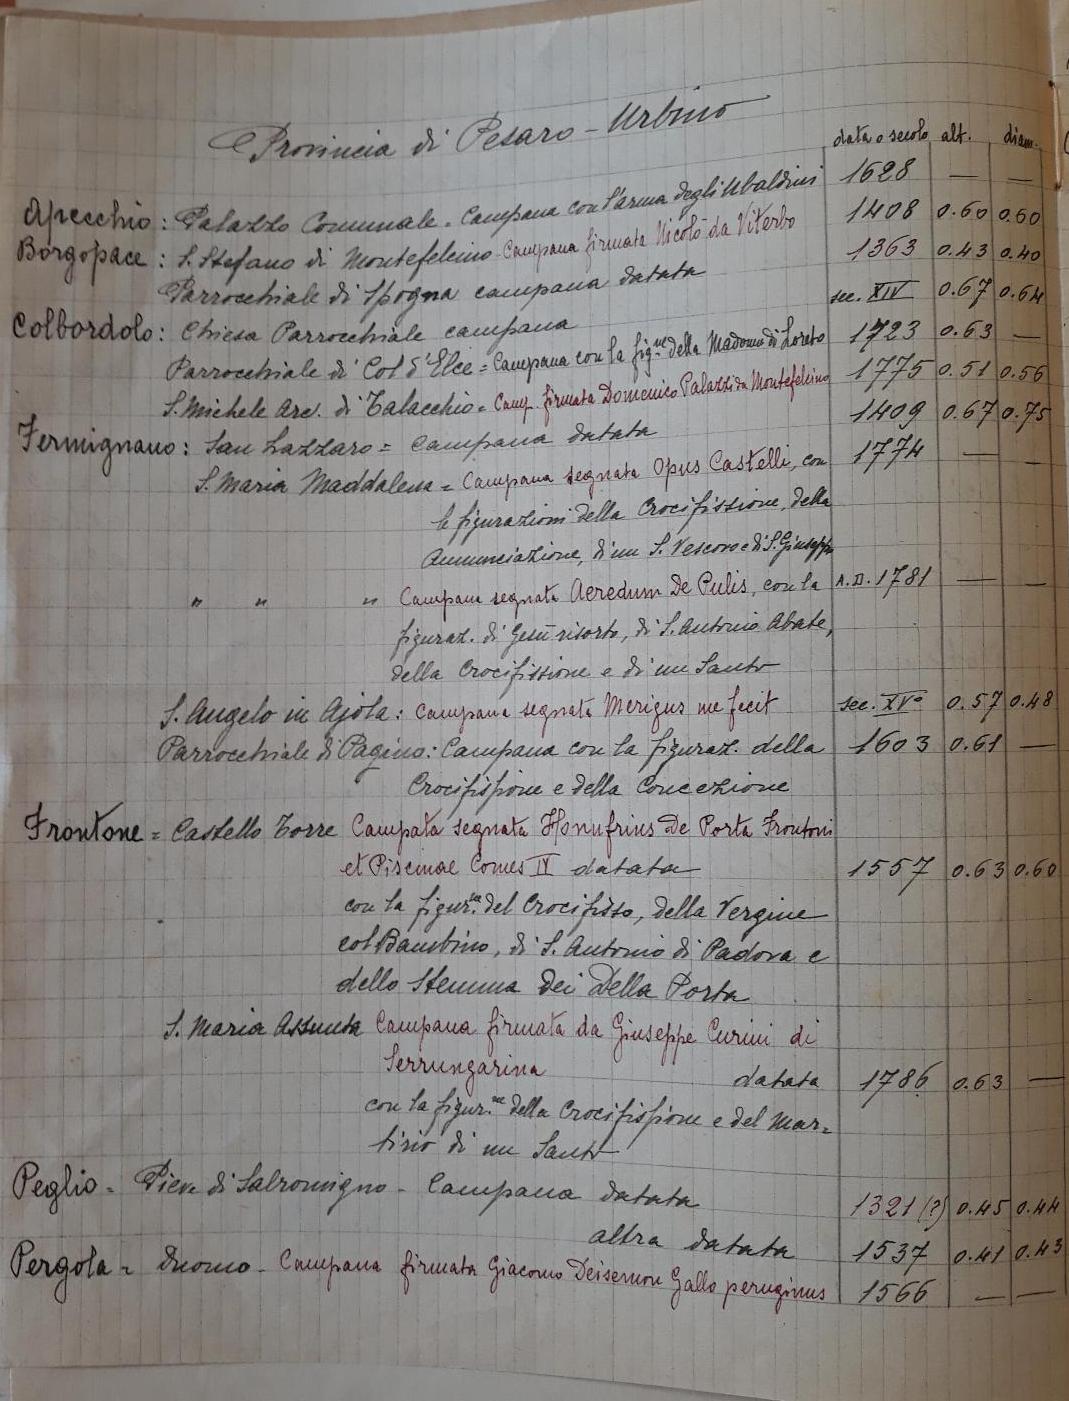 Provincia di Pesaro - Urbino
data o secolo alt. diam.
Apecchio: Palazzo Comunale - Campana con l'arma degli Ubaldini 1628 — —
Borgopace: S. Stefano di Montefelcino - Campana firmata Nicolò da Viterbo 1408 0.60 0.60
Parrocchiale di Spogna campana datata 1363 0.43 0.40
Colbordolo: Chiesa Parrocchiale campana sec. XIV 0.67 0.64
Parrocchiale di Col d'Elce = Campana con la fig.ne della Madonna di Loreto 1723 0.63 —
S. Michele Arc. di Talacchio = Camp. firmata Domenico Palazzi da Montefelcino 1775 0.51 0.56
Fermignano: San Lazzaro = campana datata 1409 0.67 0.75
S. Maria Maddalena = Campana segnata Opus Castelli, con 1774 — —
le figurazioni della Crocifissione, della
Annunciazione, di un S. Vescovo e di S. Giuseppe
" " " Campana segnata Aeredum De Pulis, con la A.D. 1781 — —
figuraz. di Gesù risorto, di S. Antonio Abate,
della Crocifissione e di un Santo
S. Angelo in Ajola: Campana segnata Merigus me fecit sec. XVº 0.57 0.48
Parrocchiale di Pagino: Campana con la figuraz. della 1603 0.61 —
Crocifissione e della Concezione
Frontone = Castello Torre Campata segnata Honufrius De Porta Frontoni
et Piscinae Comes IV datata 1557 0.63 0.60
con la figur.ne del Crocifisso, della Vergine
col Bambino, di S. Antonio di Padova e
dello stemma dei Della Porta
S. Maria Assunta Campana firmata da Giuseppe Curini di
Serrungarina datata 1786 0.63 —
con la figur.ne della Crocifissione e del mar=
tirio di un Santo
Peglio = Pieve di Salromigno - Campana datata 1321 (?) 0.45 0.44
altra datata 1537 0.41 0.43
Pergola = Duomo - Campana firmata Giacomo Deisemon Gallo peruginus 1566 — —